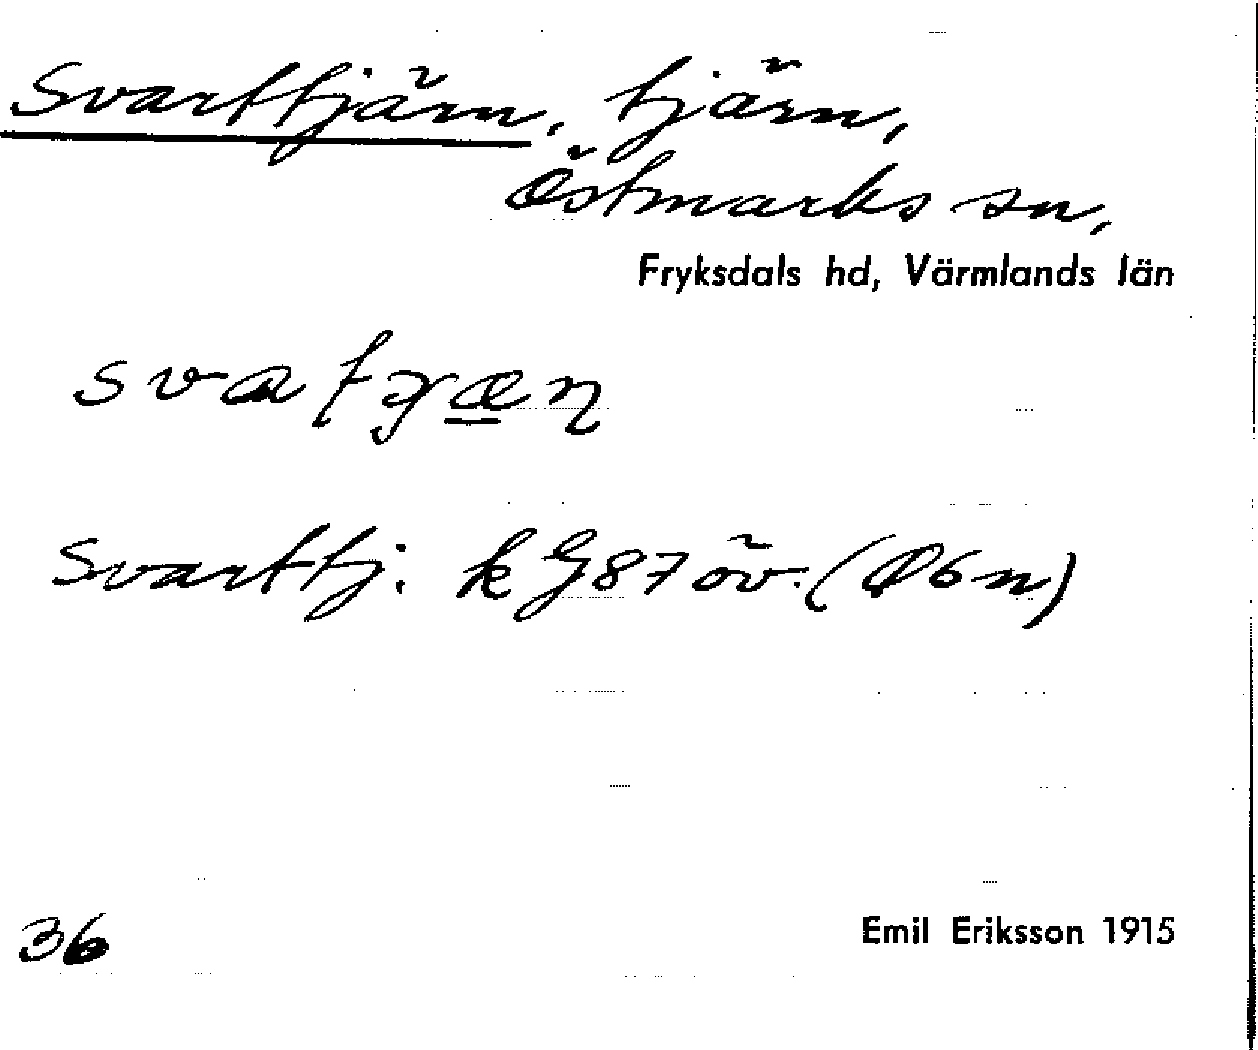 Svarttjärn, tjärn,
Östmarks sn,
Fryksdals hd, Värmlands län
Svarttj. k G87 öv. (Ö6n)
36
Emil Eriksson 1915